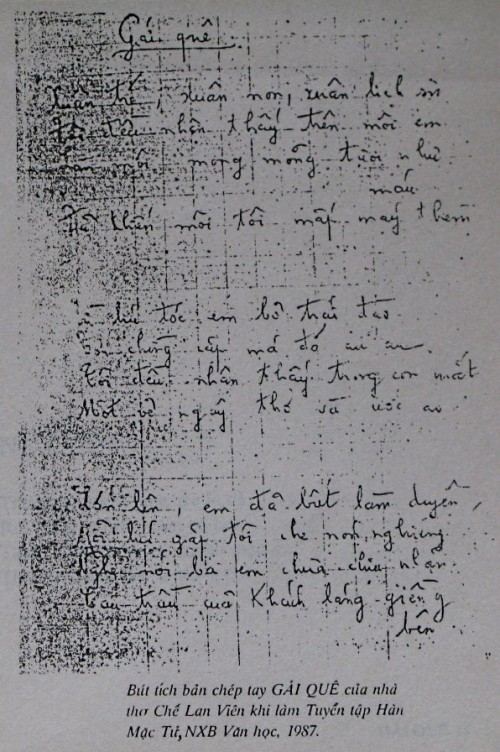 Gái quê
Xuân trẻ, xuân non, xuân lịch sử
Tôi đều nhận thấy trên môi em
làn môi mong mỏng tươi như
máu
Đã khiến môi tôi mấp máy thèm
Từ lúc tóc em bỏ trái đào
Tới chừng cặp má đỏ au au
Tôi đều nhận thấy trong con mắt
Một vẻ ngây thơ và ước ao
Lớn lên, em đã biết làm duyên,
Mỗi lúc gặp tôi che nón nghiêng
Nghe nói ba em chưa chịu nhận
Cau trầu của Khách láng giềng
bên
Bút tích bản chép tay GÁI QUÊ của nhà
thơ Chế Lan Viên khi làm Tuyển tập Hàn
Mặc Tử, NXB Văn học, 1987.